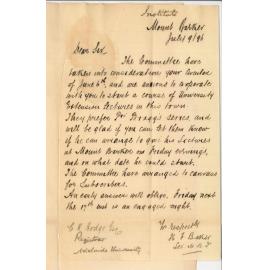 Institute
Mount Barker
July 9/96
Dear Sir
The Committee have
taken into consideration your
of June 6th, and are anxious to
with you to start a course of University
Extension Lectures in this town
They prefer Dr Bragg's series, and
will be glad if you can let them know
if he can arrange to give his Lectures
at Mount Barker on Friday evenings,
and on what date he could start.
The Committee have arranged to canvass
for Subscribers.
An early answer will oblige. Friday next
the 17th inst is an engaged night.
C. R. Hodge Esq
Registrar
Adelaide University
Yr respectfy
H F
Sec